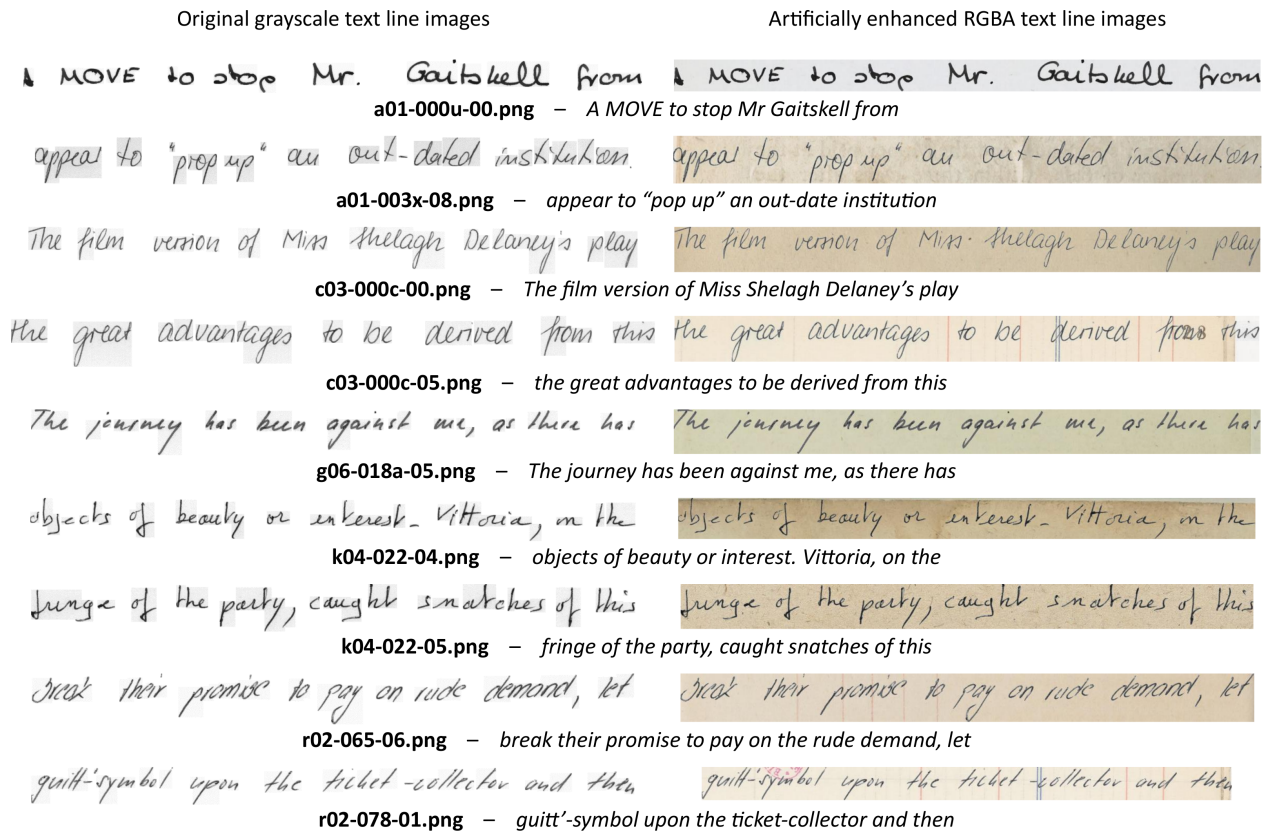 Original grayscale text line images Artificially enhanced RGBA text line images
A MOVE to stop Mr. Gaitskell from A MOVE to stop Mr. Gaitskell from
a01-000u-00.png – A MOVE to stop Mr Gaitskell from
appear to "prop up" an out-dated institution. appear to "prop up" an out-dated institution.
a01-003x-08.png – appear to “pop up” an out-date institution
The film version of Miss Shelagh Delaney's play The film version of Miss Shelagh Delaney's play
c03-000c-00.png – The film version of Miss Shelagh Delaney’s play
the great advantages to be derived from this the great advantages to be derived from this
c03-000c-05.png – the great advantages to be derived from this
The journey has been against me, as there has The journey has been against me, as there has
g06-018a-05.png – The journey has been against me, as there has
objects of beauty or interest. Vittoria, on the objects of beauty or interest. Vittoria, on the
k04-022-04.png – objects of beauty or interest. Vittoria, on the
fringe of the party, caught snatches of this fringe of the party, caught snatches of this
k04-022-05.png – fringe of the party, caught snatches of this
break their promise to pay on rude demand, let break their promise to pay on rude demand, let
r02-065-06.png – break their promise to pay on the rude demand, let
guitt'-symbol upon the ticket-collector and then guitt'-symbol upon the ticket-collector and then
r02-078-01.png – guitt’-symbol upon the ticket-collector and then